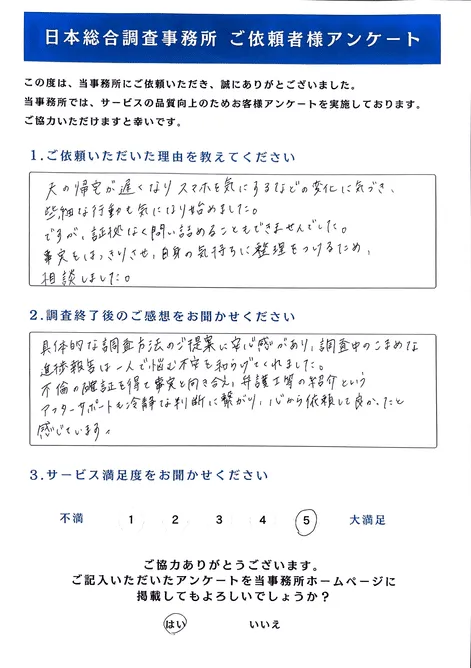 日本総合調査事務所 ご依頼者様アンケート
この度は、当事務所にご依頼いただき、誠にありがとございました。
当事務所では、サービスの品質向上のためお客様アンケートを実施しております。
ご協力いただけますと幸いです。
1.ご依頼いただいた理由を教えてください
夫の帰宅が遅くなりスマホを気にするなどの変化に気づき、
些細な行動も気になり始めました。
ですが、証拠なく問い詰めることもできませんでした。
事実をはっきりさせ、自身の気持ちに整理をつけるため、
相談しました。
2.調査終了後のご感想をお聞かせください
具体的な調査方法のご提案に安心感があり、調査中のこまめな
進捗報告は一人で悩む不安を和らげてくれました。
不倫の確証を得て事実と向き合え、弁護士等の紹介という
アフターサポートも冷静な判断に繋がり、心から依頼して良かったと
感じています。
3.サービス満足度をお聞かせください
不満 1 2 3 4 5 大満足
ご協力ありがとうございます。
ご記入いただいたアンケートを当事務所ホームページに
掲載してもよろしいでしょうか？
はい いいえ